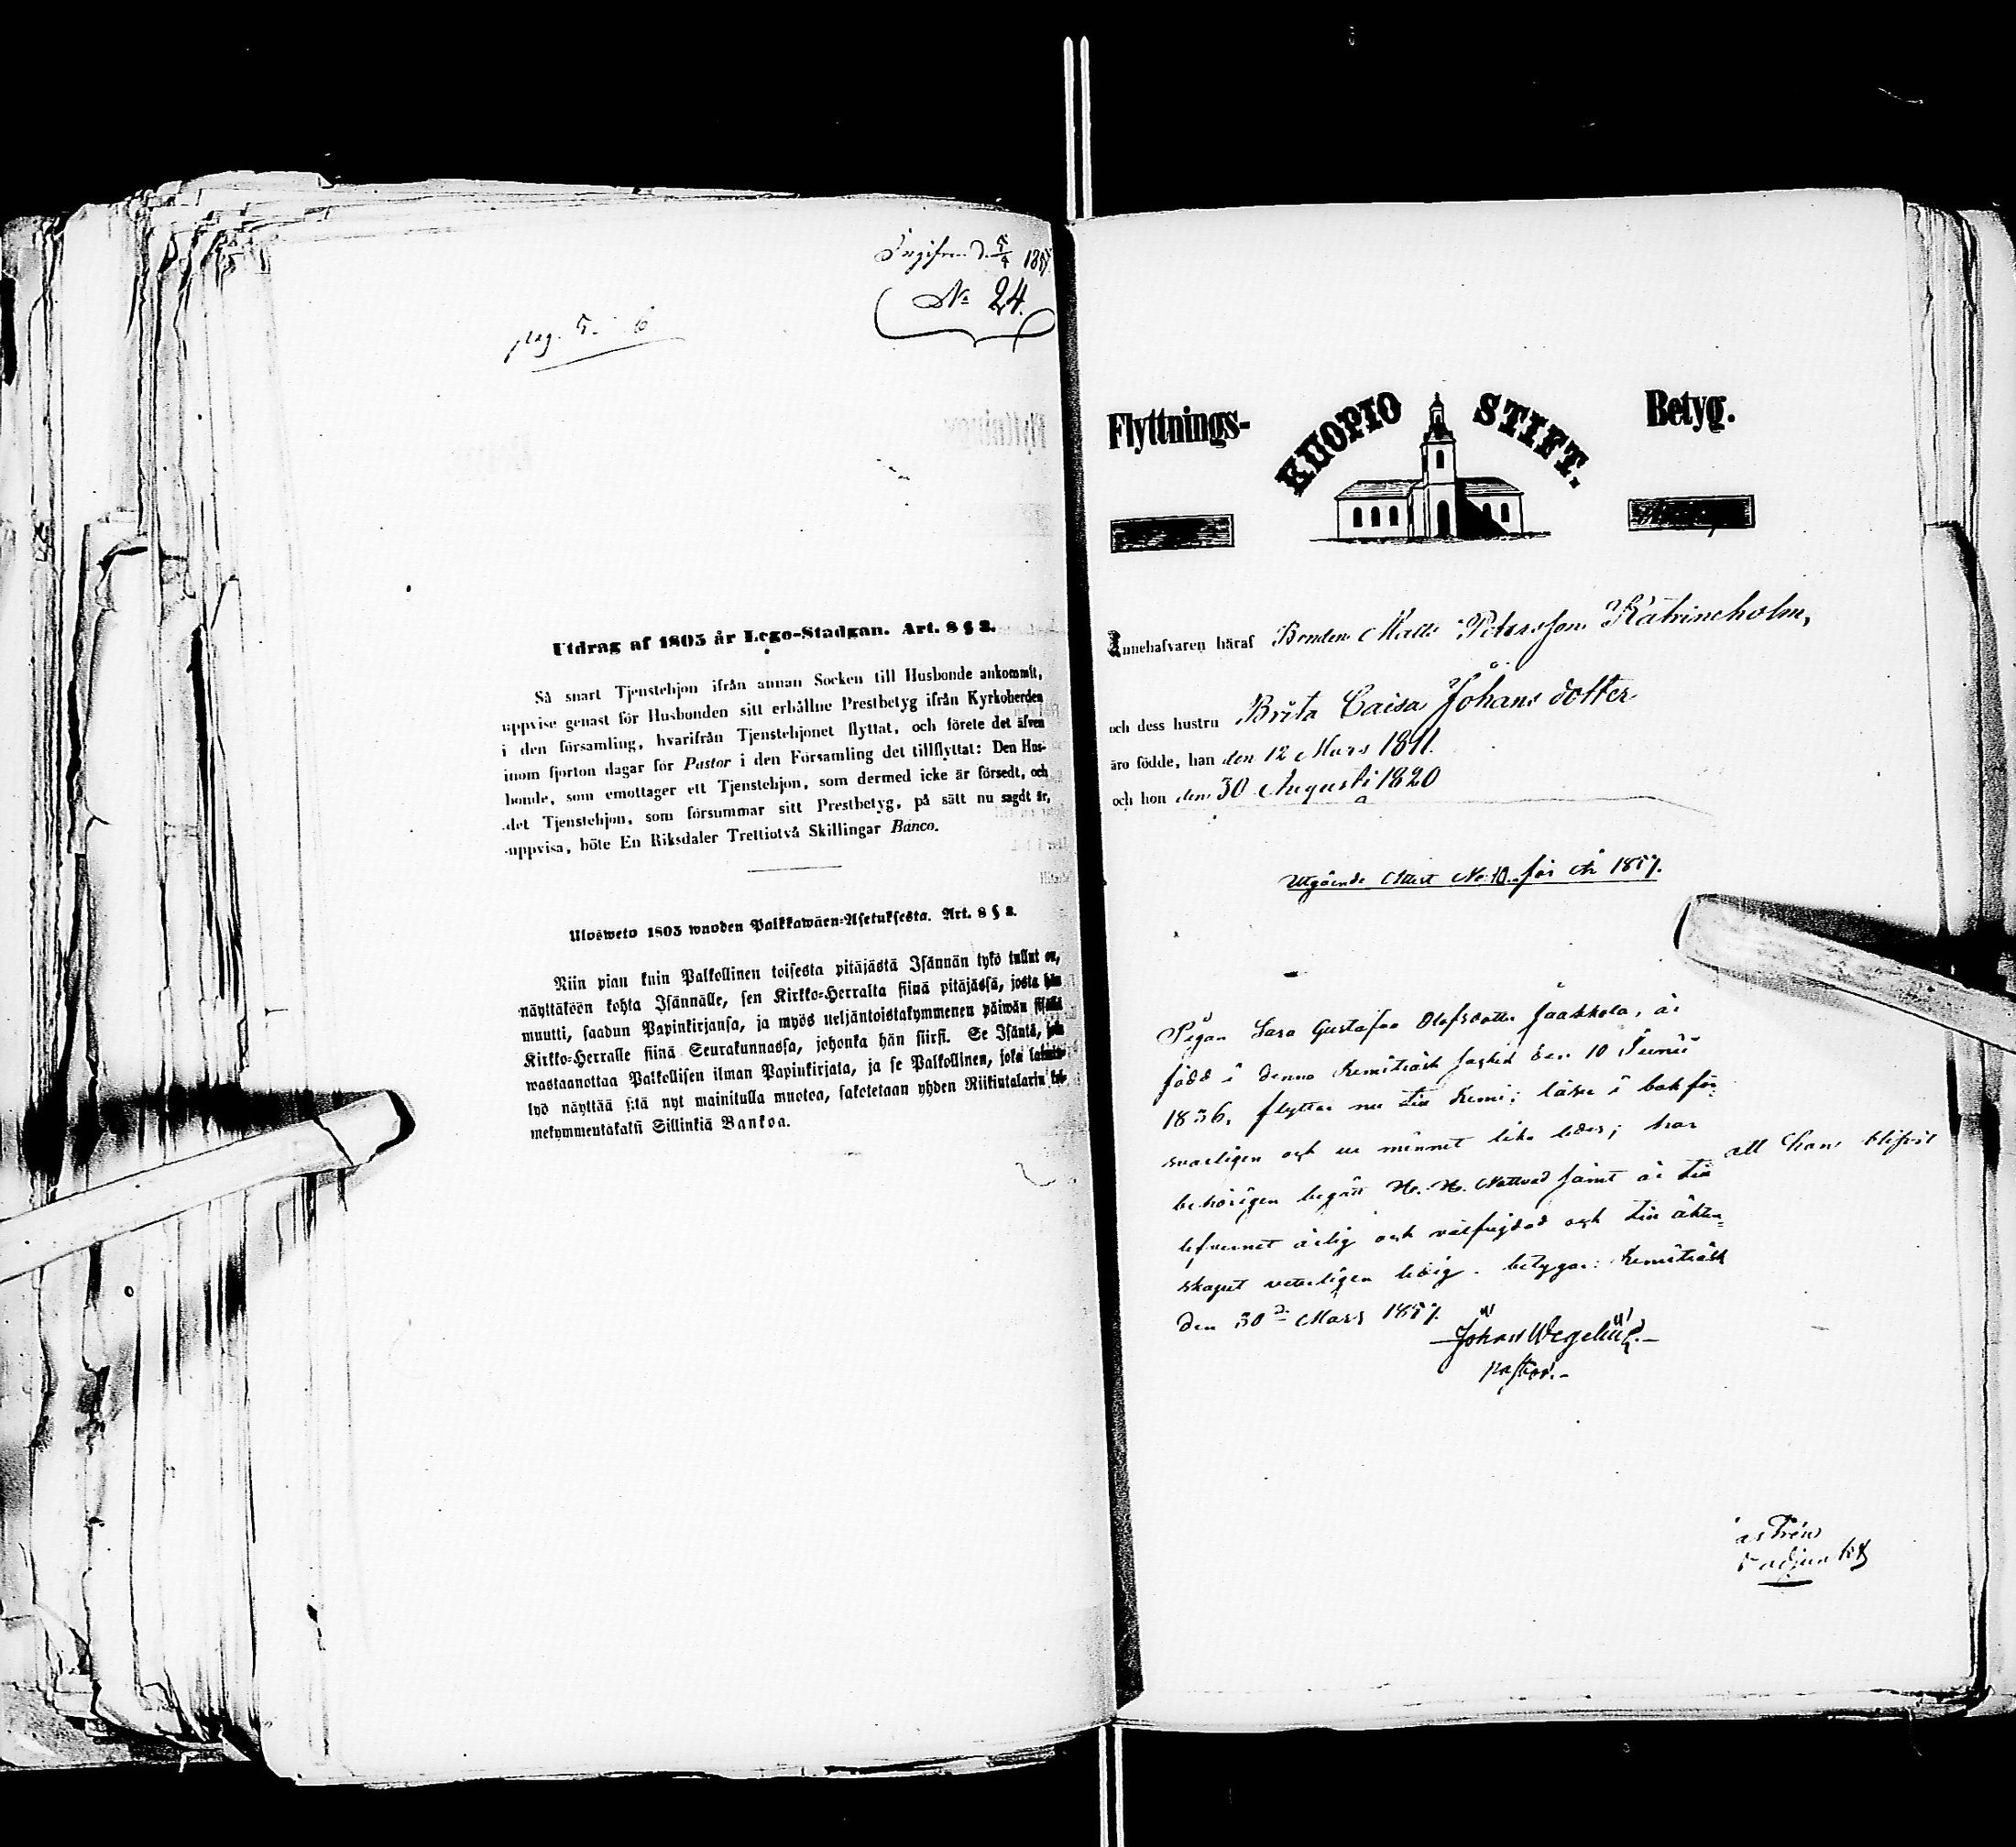 Ingifven d. 5/4 1857
No 24.
pag. 5. 6
Utdrag af 1805 år Lego-Stadgan. Art. 8 § 2.
Så snart Tjenstehjon ifrån annan Socken till Husbonde ankommit,
uppvise genast för Husbonden sitt erhållne Prestbetyg ifrån Kyrkoherden
i den församling, hvarifrån Tjenstehjonet flyttat, och förete det äfven
inom fjorton dagar för Pastor i den Församling det tillflyttat: Den Hus-
bonde, som emottager ett Tjenstehjon, som dermed icke är försedt, och
det Tjenstehjon, som försummar sitt Prestbetyg, på sätt nu sagdt är,
uppvisa, böte En Riksdaler Trettiotvå Skillingar Banco.
Ulosweto 1805 wuoden Palkkawäen-Asetuksesta. Art. 8 § 2.
Niin pian kuin Palkollinen toisesta pitäjästä Isännän tykö tullut on,
näyttäköön kohta Isännälle, sen Kirkko-Herralta siinä pitäjässä, josta hän
muutti, saadun Papinkirjansa, ja myös neljäntoistakymmenen päiwän sisällä
Kirkko-Herralle siinä Seurakunnassa, johonka hän siirsi. Se Isäntä, joka
wastaanottaa Palkollisen ilman Papinkirjata, ja se Palkollinen, joka laimin
lyö näyttää sitä nyt mainitulla muotoa, sakotetaan yhden Riikintalarin kol-
mekymmentäkaksi Sillinkiä Bankoa.
Flyttnings- KUOPIO STIFT. Betyg.
Innehafvaren häraf Bonden Matts Petersson Katrineholm,
och dess hustru Brita Caisa Johansdotter
äro födde, han den 12 Mars 1811.
och hon den 30 Augusti 1820
Utgående Attest No 10 för år 1857.
Pigan Sara Gustafva Olofsdotter Jaakkola, är
född i denna Kemiträsk socken den 10 Junii
1836, flyttar nu till Kemi; läser i bok för-
svarligen och ur minnet lika ledes; har
behörigen begått H. H. Nattvard samt är till
att han blifvit
lefvernet ärlig och välfrejdad och till äkten-
skapet veterligen ledig. betygar: Kemiträsk
den 30de Mars 1857.
Johan Wegelius.
pastor.
astrén
adjunkt